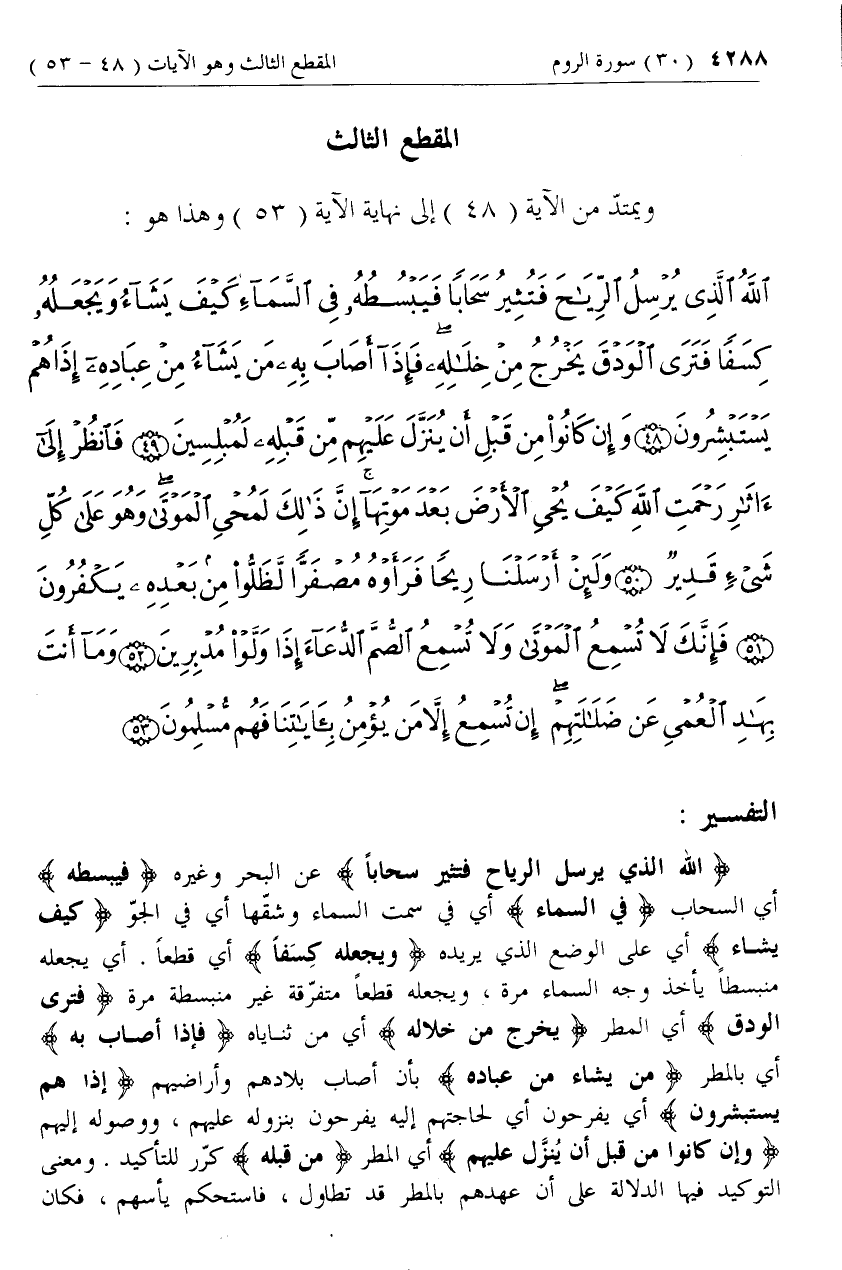 ٤٢٨٨ (٣٠) سورة الروم المقطع الثالث وهو الآيات ( ٤٨ – ٥٣ )
المقطع الثالث
ويمتدّ من الآية ( ٤٨ ) إلى نهاية الآية ( ٥٣ ) وهذا هو :
ٱللَّهُ ٱلَّذِى يُرْسِلُ ٱلرِّيَـٰحَ فَتُثِيرُ سَحَابًا فَيَبْسُطُهُۥ فِى ٱلسَّمَآءِ كَيْفَ يَشَآءُ وَيَجْعَلُهُۥ
كِسَفًا فَتَرَى ٱلْوَدْقَ يَخْرُجُ مِنْ خِلَـٰلِهِۦۖ فَإِذَآ أَصَابَ بِهِۦ مَن يَشَآءُ مِنْ عِبَادِهِۦٓ إِذَا هُمْ
يَسْتَبْشِرُونَ ٤٨ وَإِن كَانُوا۟ مِن قَبْلِ أَن يُنَزَّلَ عَلَيْهِم مِّن قَبْلِهِۦ لَمُبْلِسِينَ ٤٩ فَٱنظُرْ إِلَىٰٓ
ءَاثَـٰرِ رَحْمَتِ ٱللَّهِ كَيْفَ يُحْىِ ٱلْأَرْضَ بَعْدَ مَوْتِهَآۚ إِنَّ ذَٰلِكَ لَمُحْىِ ٱلْمَوْتَىٰۖ وَهُوَ عَلَىٰ كُلِّ
شَىْءٍ قَدِيرٌ ٥٠ وَلَئِنْ أَرْسَلْنَا رِيحًا فَرَأَوْهُ مُصْفَرًّا لَّظَلُّوا۟ مِنۢ بَعْدِهِۦ يَكْفُرُونَ
٥١ فَإِنَّكَ لَا تُسْمِعُ ٱلْمَوْتَىٰ وَلَا تُسْمِعُ ٱلصُّمَّ ٱلدُّعَآءَ إِذَا وَلَّوْا۟ مُدْبِرِينَ ٥٢ وَمَآ أَنتَ
بِهَـٰدِ ٱلْعُمْىِ عَن ضَلَـٰلَتِهِمْۖ إِن تُسْمِعُ إِلَّا مَن يُؤْمِنُ بِـَٔايَـٰتِنَا فَهُم مُّسْلِمُونَ ٥٣
التفسير :
﴿ الله الذي يرسل الرياح فتثير سحاباً ﴾ عن البحر وغيره ﴿ فيبسطه ﴾
أي السحاب ﴿ في السماء ﴾ أي في سمت السماء وشقّها أي في الجوّ ﴿ كيف
يشاء ﴾ أي على الوضع الذي يريده ﴿ ويجعله كِسَفاً ﴾ أي قطعاً . أي يجعله
منبسطاً يأخذ وجه السماء مرة ، ويجعله قطعاً متفرّقة غير منبسطة مرة ﴿ فترى
الودق ﴾ أي المطر ﴿ يخرج من خلاله ﴾ أي من ثناياه ﴿ فإذا أصاب به ﴾
أي بالمطر ﴿ من يشاء من عباده ﴾ بأن أصاب بلادهم وأراضيهم ﴿ إذا هم
يستبشرون ﴾ أي يفرحون أي لحاجتهم إليه يفرحون بنزوله عليهم ، ووصوله إليهم
﴿ وإن كانوا من قبل أن يُنزَّل عليهم ﴾ أي المطر ﴿ من قبله ﴾ كرّر للتأكيد . ومعنى
التوكيد فيها الدلالة على أن عهدهم بالمطر قد تطاول ، فاستحكم يأسهم ، فكان